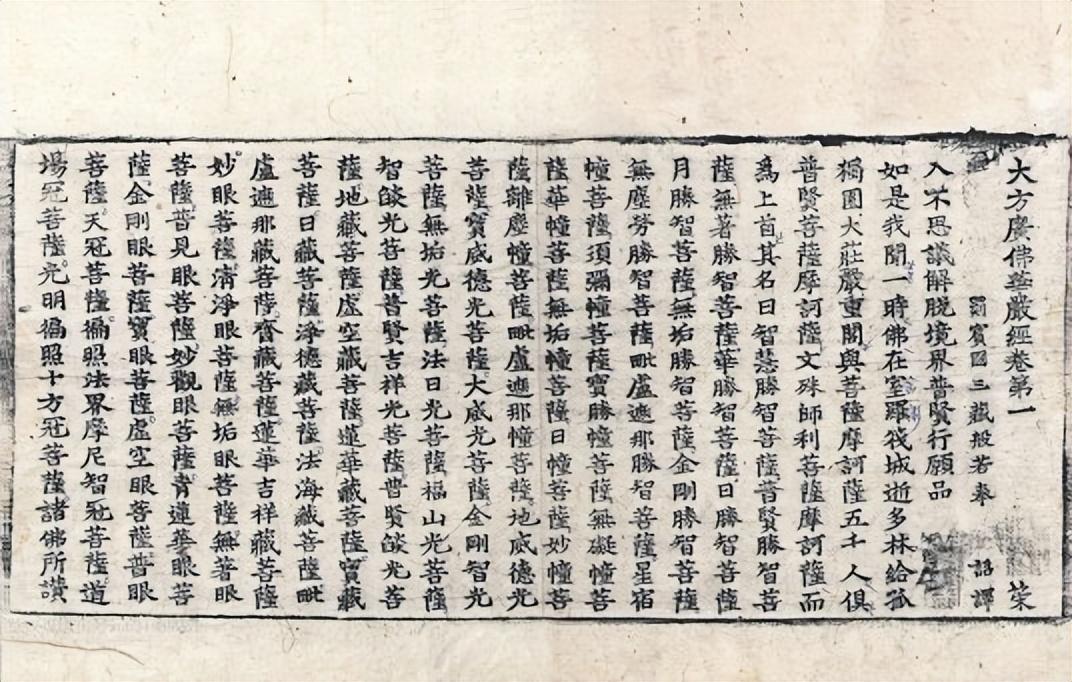 大方廣佛華嚴經卷第一
罽賓國三藏般若奉 詔譯
入不思議解脫境界普賢行願品
如是我聞一時佛在室羅筏城逝多林給孤
獨園大莊嚴重閣與菩薩摩訶薩五千人俱
普賢菩薩摩訶薩文殊師利菩薩摩訶薩而
爲上首其名曰智慧勝智菩薩普賢勝智菩
薩無著勝智菩薩華勝智菩薩日勝智菩薩
月勝智菩薩無垢勝智菩薩金剛勝智菩薩
無塵勞勝智菩薩毗盧遮那勝智菩薩星宿
幢菩薩須彌幢菩薩寶勝幢菩薩無礙幢菩
薩華幢菩薩無垢幢菩薩日幢菩薩妙幢菩
薩離塵幢菩薩毗盧遮那幢菩薩地威德光
菩薩寶威德光菩薩大威光菩薩金剛智光
菩薩無垢光菩薩法日光菩薩福山光菩薩
智燄光菩薩普賢吉祥光菩薩普賢燄光菩
薩地藏菩薩虛空藏菩薩蓮華藏菩薩寶藏
菩薩日藏菩薩淨德藏菩薩法海藏菩薩毗
盧遮那藏菩薩齊藏菩薩蓮華吉祥藏菩薩
妙眼菩薩清淨眼菩薩無垢眼菩薩無著眼
菩薩普見眼菩薩妙觀眼菩薩青蓮華眼菩
薩金剛眼菩薩寶眼菩薩虛空眼菩薩普眼
菩薩天冠菩薩徧照法界摩尼智冠菩薩道
場冠菩薩光明徧照十方冠菩薩諸佛所讚